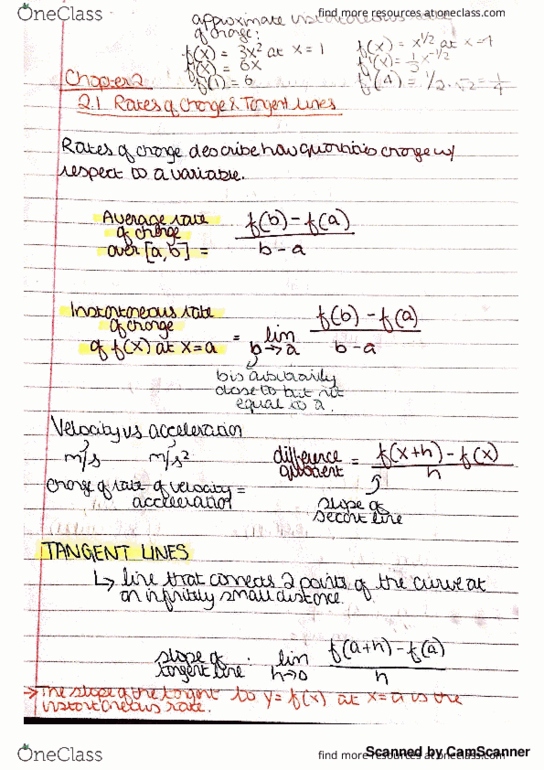 OneClass
find more resources at oneclass.com
approximate instantaneous rate
of change:
f(x) = 3x² at x = 1
f'(x) = 6x
f'(1) = 6
f(x) = x^1/2 at x=4
f'(x) = 1/2 x^-1/2
f'(4) = 1/2 · √2 = 1/4
Chapter 2
2.1 Rates of Change & Tangent Lines
Rates of change describe how quantities change w/
respect to a variable.
Average rate
of change
over [a,b] =
f(b) - f(a)
b - a
Instantaneous rate
of change
of f(x) at x=a
= lim
b→a
f(b) - f(a)
b - a
b is arbitrarily
close to but not
equal to a.
Velocity vs acceleration
m/s
m/s²
change of rate of velocity =
acceleration
difference
quotient
= f(x+h) - f(x)
h
slope of
secant line
TANGENT LINES
↳ line that connects 2 points of the curve at
an infinitely small distance.
slope of
tangent line :
lim
h→0
f(a+h) - f(a)
h
→ The slope of the tangent to y = f(x) at x=a is the
instantaneous rate.
OneClass
find more resources at oneclass.com
Scanned by CamScanner